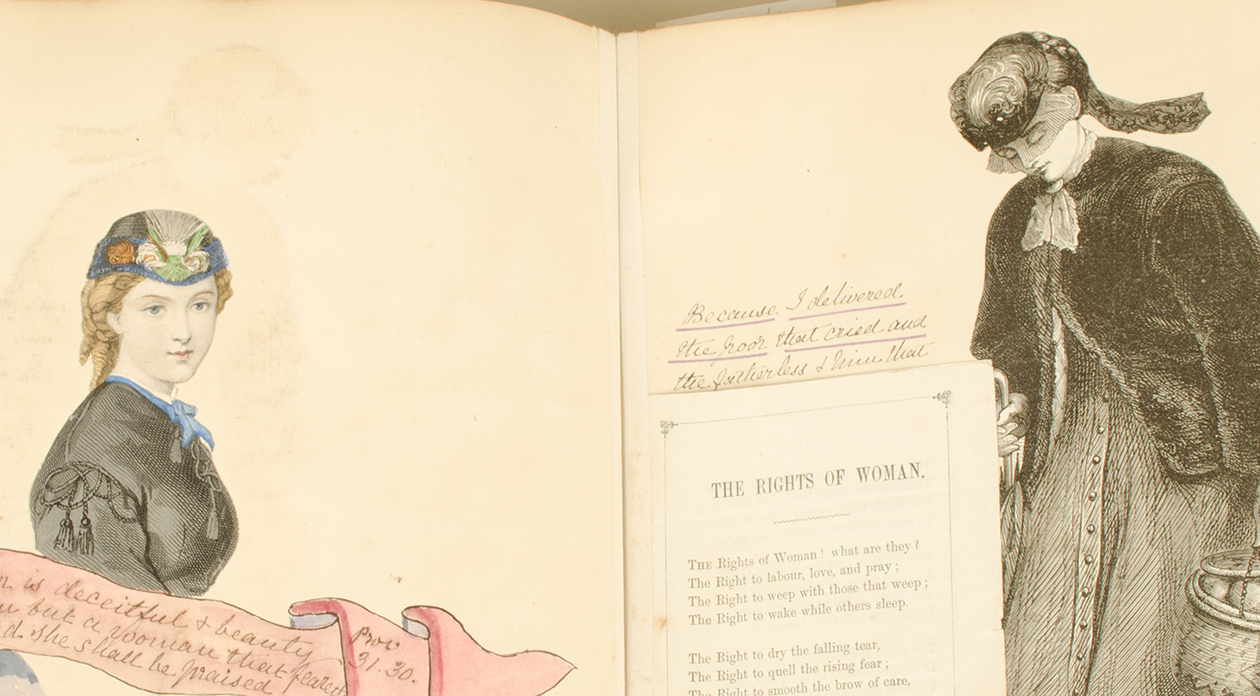 is deceitful & beauty
but a woman that feareth
she shall be praised
Prov
31. 30.
Because I delivered
the poor that cried and
the fatherless & him that
THE RIGHTS OF WOMAN.
THE Rights of Woman! what are they?
The Right to labour, love, and pray;
The Right to weep with those that weep;
The Right to wake while others sleep.
The Right to dry the falling tear,
The Right to quell the rising fear;
The Right to smooth the brow of care,